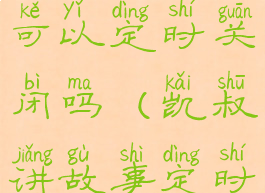 kě yǐ dìng shí guān
可以定时关
bì ma kǎi shū
闭吗（凯叔
jiǎng gù shì dìng shí
讲故事定时